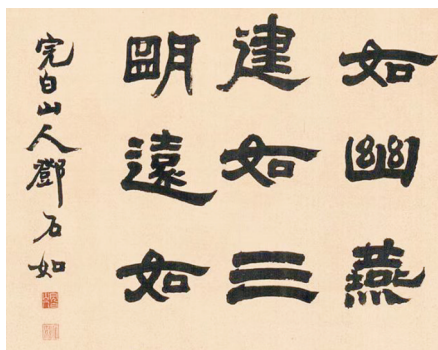 如幽燕
建如三
朙遠如
完白山人鄧石如